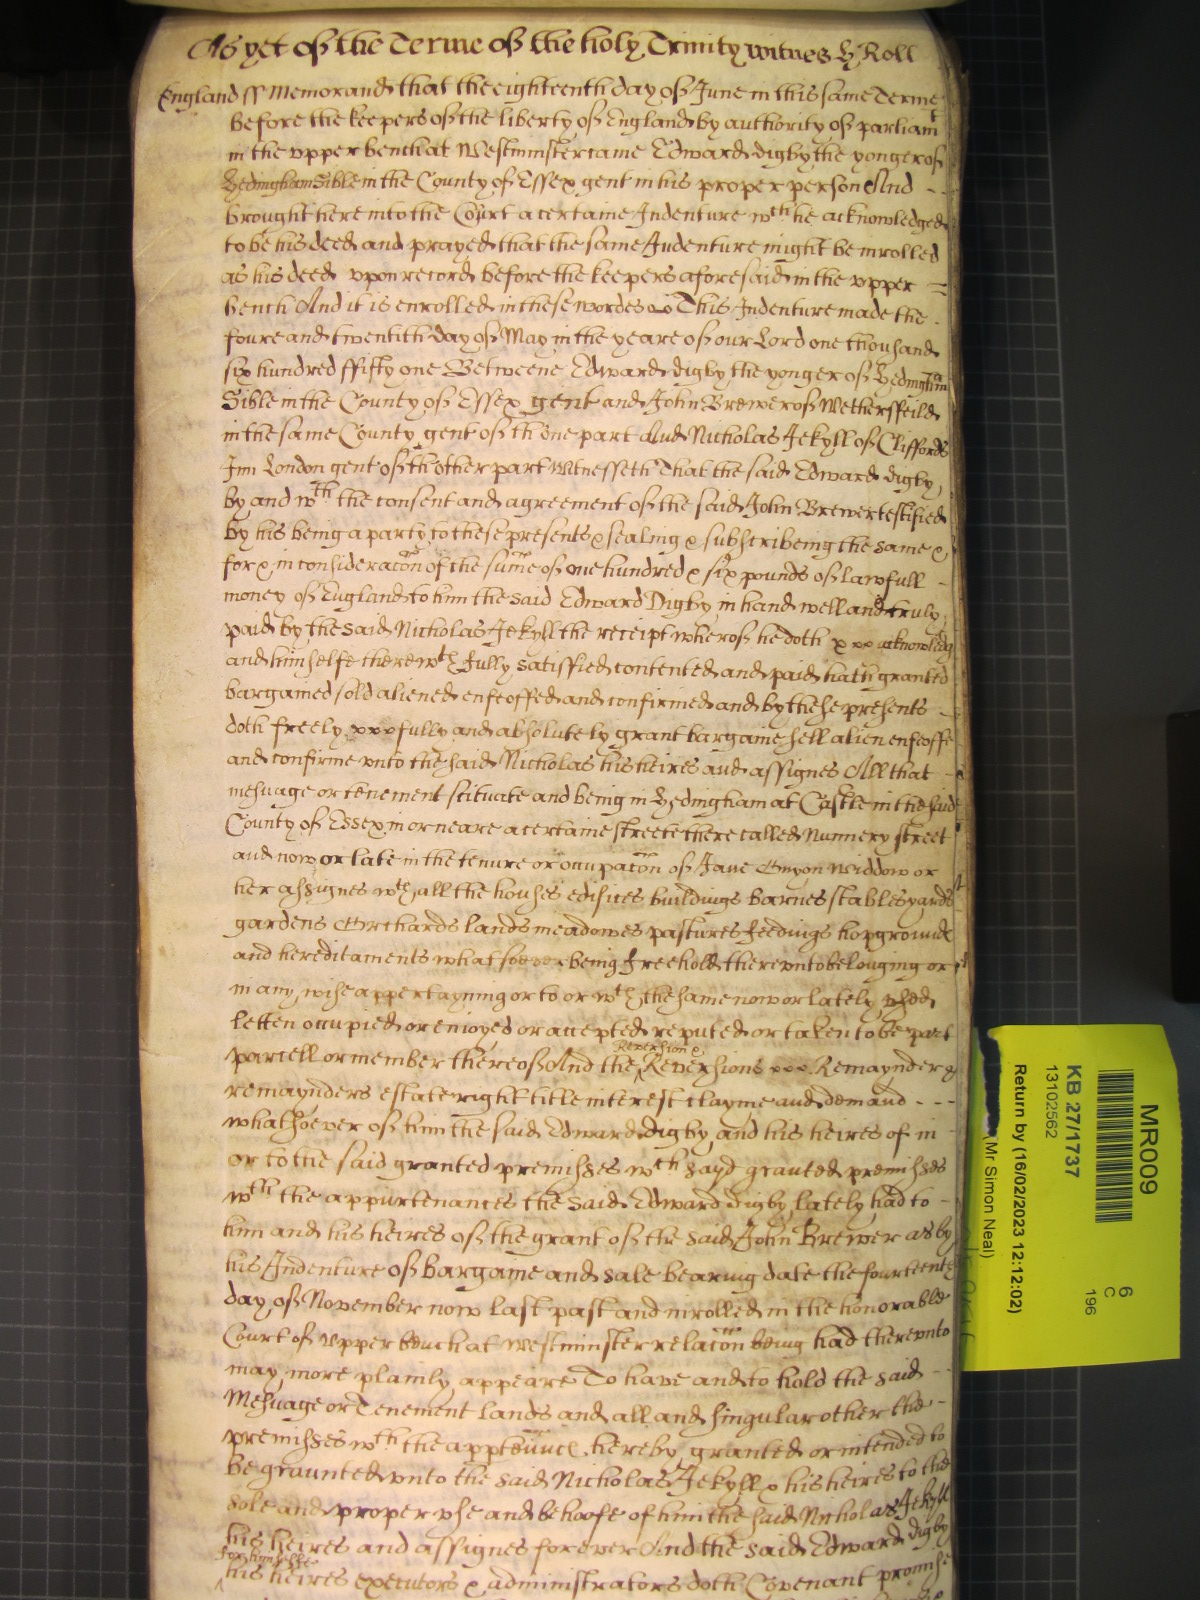 As yet of the Terme of the holy Trinity witnes H Roll
England ss Memorand that the eighteenth day of June in this same Terme
before the keepers of the liberty of England by authority of parliamt
in the vpper bench at Westminster came Edward Digby the yonger of
Hedingham Sible in the County of Essex gent in his proper person And - -
brought here into the Court a certaine Indenture wch he acknowledged
to be his deed and prayed that the same Indenture might be inrolled
as his deed vpon record before the keepers aforesaid in the vpper =
bench And it is enrolled in these wordes This Indenture made the -
foure and twentith day of May in the yeare of our Lord one thousand
six hundred ffifty one Betweene Edward Digby the yonger of Hedingham
Sible in the County of Essex gent and John Brewer of Wethersfeild
in the same County gent of thone part And Nicholas Jekyll of Cliffords
Inn London gent of thother part Witnesseth That the said Edward Digby
by and wth the consent and agreement of the said John Brewer testified
by his being a party to these presents & sealing & subscribeing the same &
for & in consideracon of the sume of one hundred & six pounds of lawfull -
money of England to him the said Edward Digby in hand well and truly
paid by the said Nicholas Jekyll the receipt wherof he doth acknowledg
and himselfe therewth fully satisfied contented and paid hath granted
bargained sold aliened enfeoffed and confirmed and by these presents -
doth freely fully and absolutely grant bargaine sell alien enfeoffe
and confirme vnto the said Nicholas his heires and assignes All that -
mesuage or tenement scituate and being in Hedingham at Castle in the said
County of Essex in or neare a certaine streete there called Nunnery street
and now or late in the tenure or occupacon of Jane Guyon widdow or
her assignes wth all the houses edifices buildings barnes stables yards
gardens Orchards lands meadowes pastures feedings hopground
and hereditaments whatsoever being freehold therevnto belonging or
in any wise appertayning or to or wth the same now or lately vsed
letten occupied or enioyed or accepted reputed or taken to be part
Reversion &
parcell or member thereof And the Reversions Remaynder &
remaynders estate right title interest clayme and demand - - -
whatsoever of him the said Edward Digby and his heires of in
or to the said granted premisses wch sayd granted premisses
wth the appurtenances the said Edward Digby lately had to -
him and his heires of the grant of the said John Brewer as by
his Indenture of bargaine and sale bearing date the fourteenth
day of November now last past and inrolled in the honorable
Court of vpper bench at Westminster relacon being had therevnto
may more plainly appeare To have and to hold the said - -
Mesuage or Tenement lands and all and singular other the -
premisses wth the hereby granted or intended to
be graunted vnto the said Nicholas Jekyll & his heires to the
sole and proper vse and behoofe of him the said Nicholas Jekyll
his heires and assignes forever And the said Edward Digby
for himselfe
his heires executors & administrators doth Covenant promise
MR009
6
C
196
KB 27/1737
13102562
Return by (16/02/2023 12:12:02)
(Mr Simon Neal)